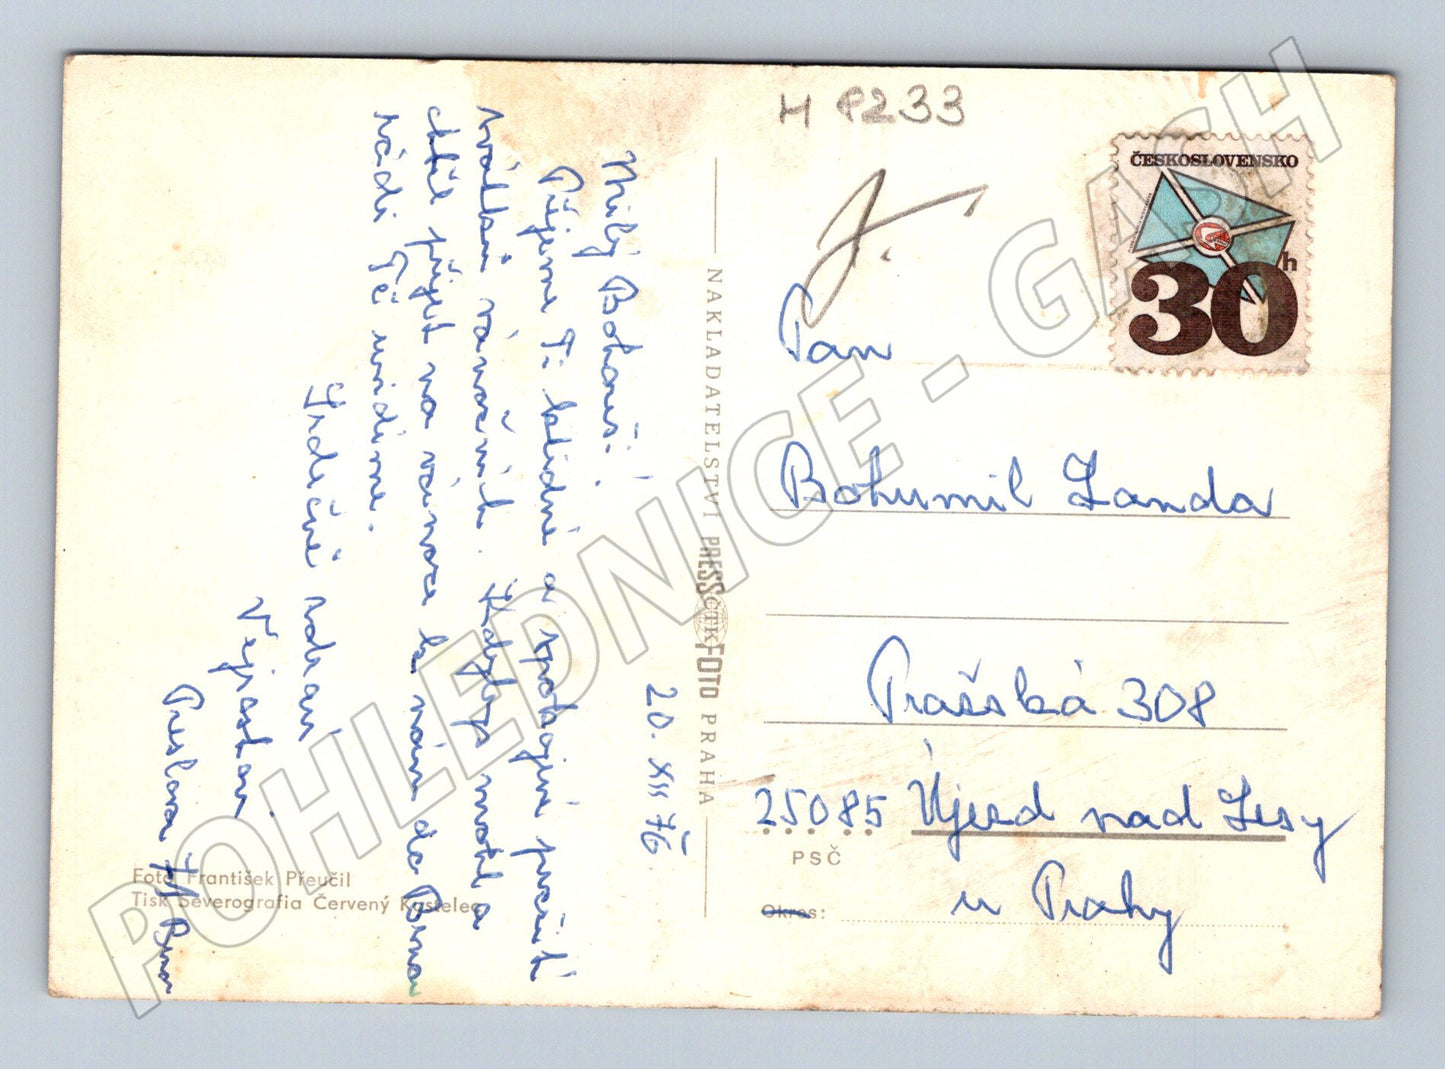 Milý Bohouši!
Přejeme Ti klidné a spokojené prožití
svátků vánočních. Kdybys mohl a
chtěl přijet na vánoce k nám do Brna
rádi Tě uvidíme.
Srdečně zdraví
Vejrostovi
20. XII 76.
Foto František Přeučil
Tisk Severografia Červený Kostelec
NAKLADATELSTVÍ PRESSFOTO PRAHA
ČTK
H 8233
ČESKOSLOVENSKO
30 h
Pan
Bohumil Landa
Pražská 308
25085 Újezd nad Lesy
PSČ
u Prahy
Okres:
POHLEDNICE - GASH